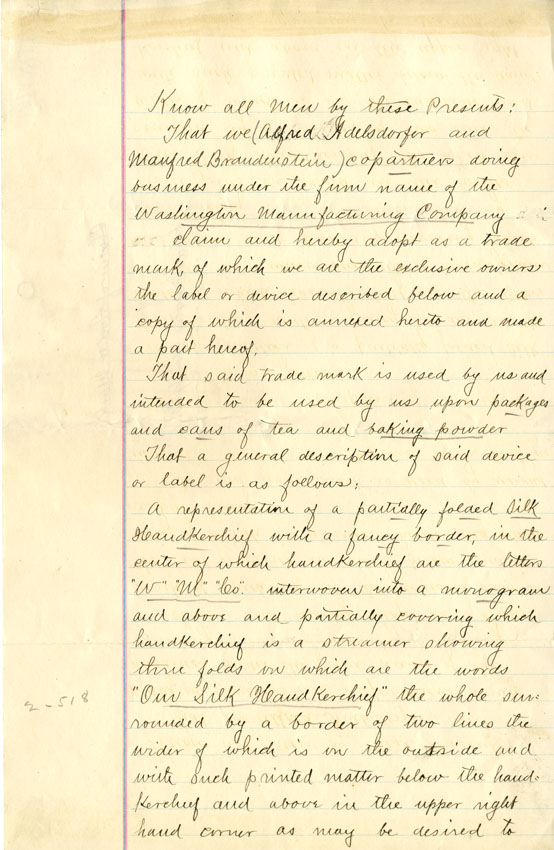 Know all Men by these Presents:
That we (Alfred Adelsdorfer and
Manfred Brandenstein) copartners doing
business under the firm name of the
Washington Manufacturing Company
claim and hereby adopt as a trade
mark, of which we are the exclusive owners
the label or device described below and a
copy of which is annexed hereto and made
a part hereof.
That said trade mark is used by us and
intended to be used by us upon packages
and cans of tea and baking powder
That a general description of said device
or label is as follows:
A representation of a partially folded Silk
Handkerchief with a fancy border, in the
center of which handkerchief are the letters
"W" "M" "Co". interwoven into a monogram
and above and partially covering which
handkerchief is a streamer showing
three folds on which are the words
"Our Silk Handkerchief" the whole sur-
rounded by a border of two lines the
wider of which is on the outside and
with such printed matter below the hand-
kerchief and above in the upper right
hand corner as may be desired to
2-518